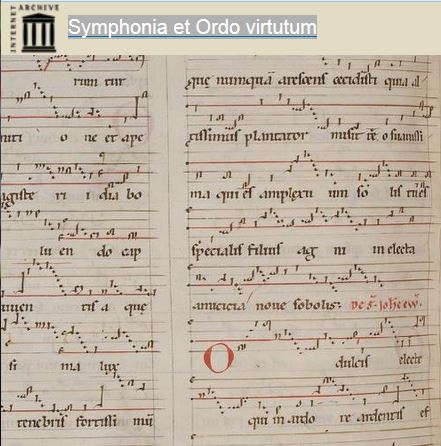 INTERNET ARCHIVE
Symphonia et Ordo virtutum
rum tur
o ne et ape
agiste ri i dia bo
lu en do cip
tis a que
si ma lux
tenebris fortissi mū
que numquā arescens cecidisti quia al
tissimus plantator misit te o suavissi
ma qui es amplexu um so lis tu es
specialis filius ag ni in electa
amicicia noue sobolis
O dulcis electe
qui in ardo re ardentis ef